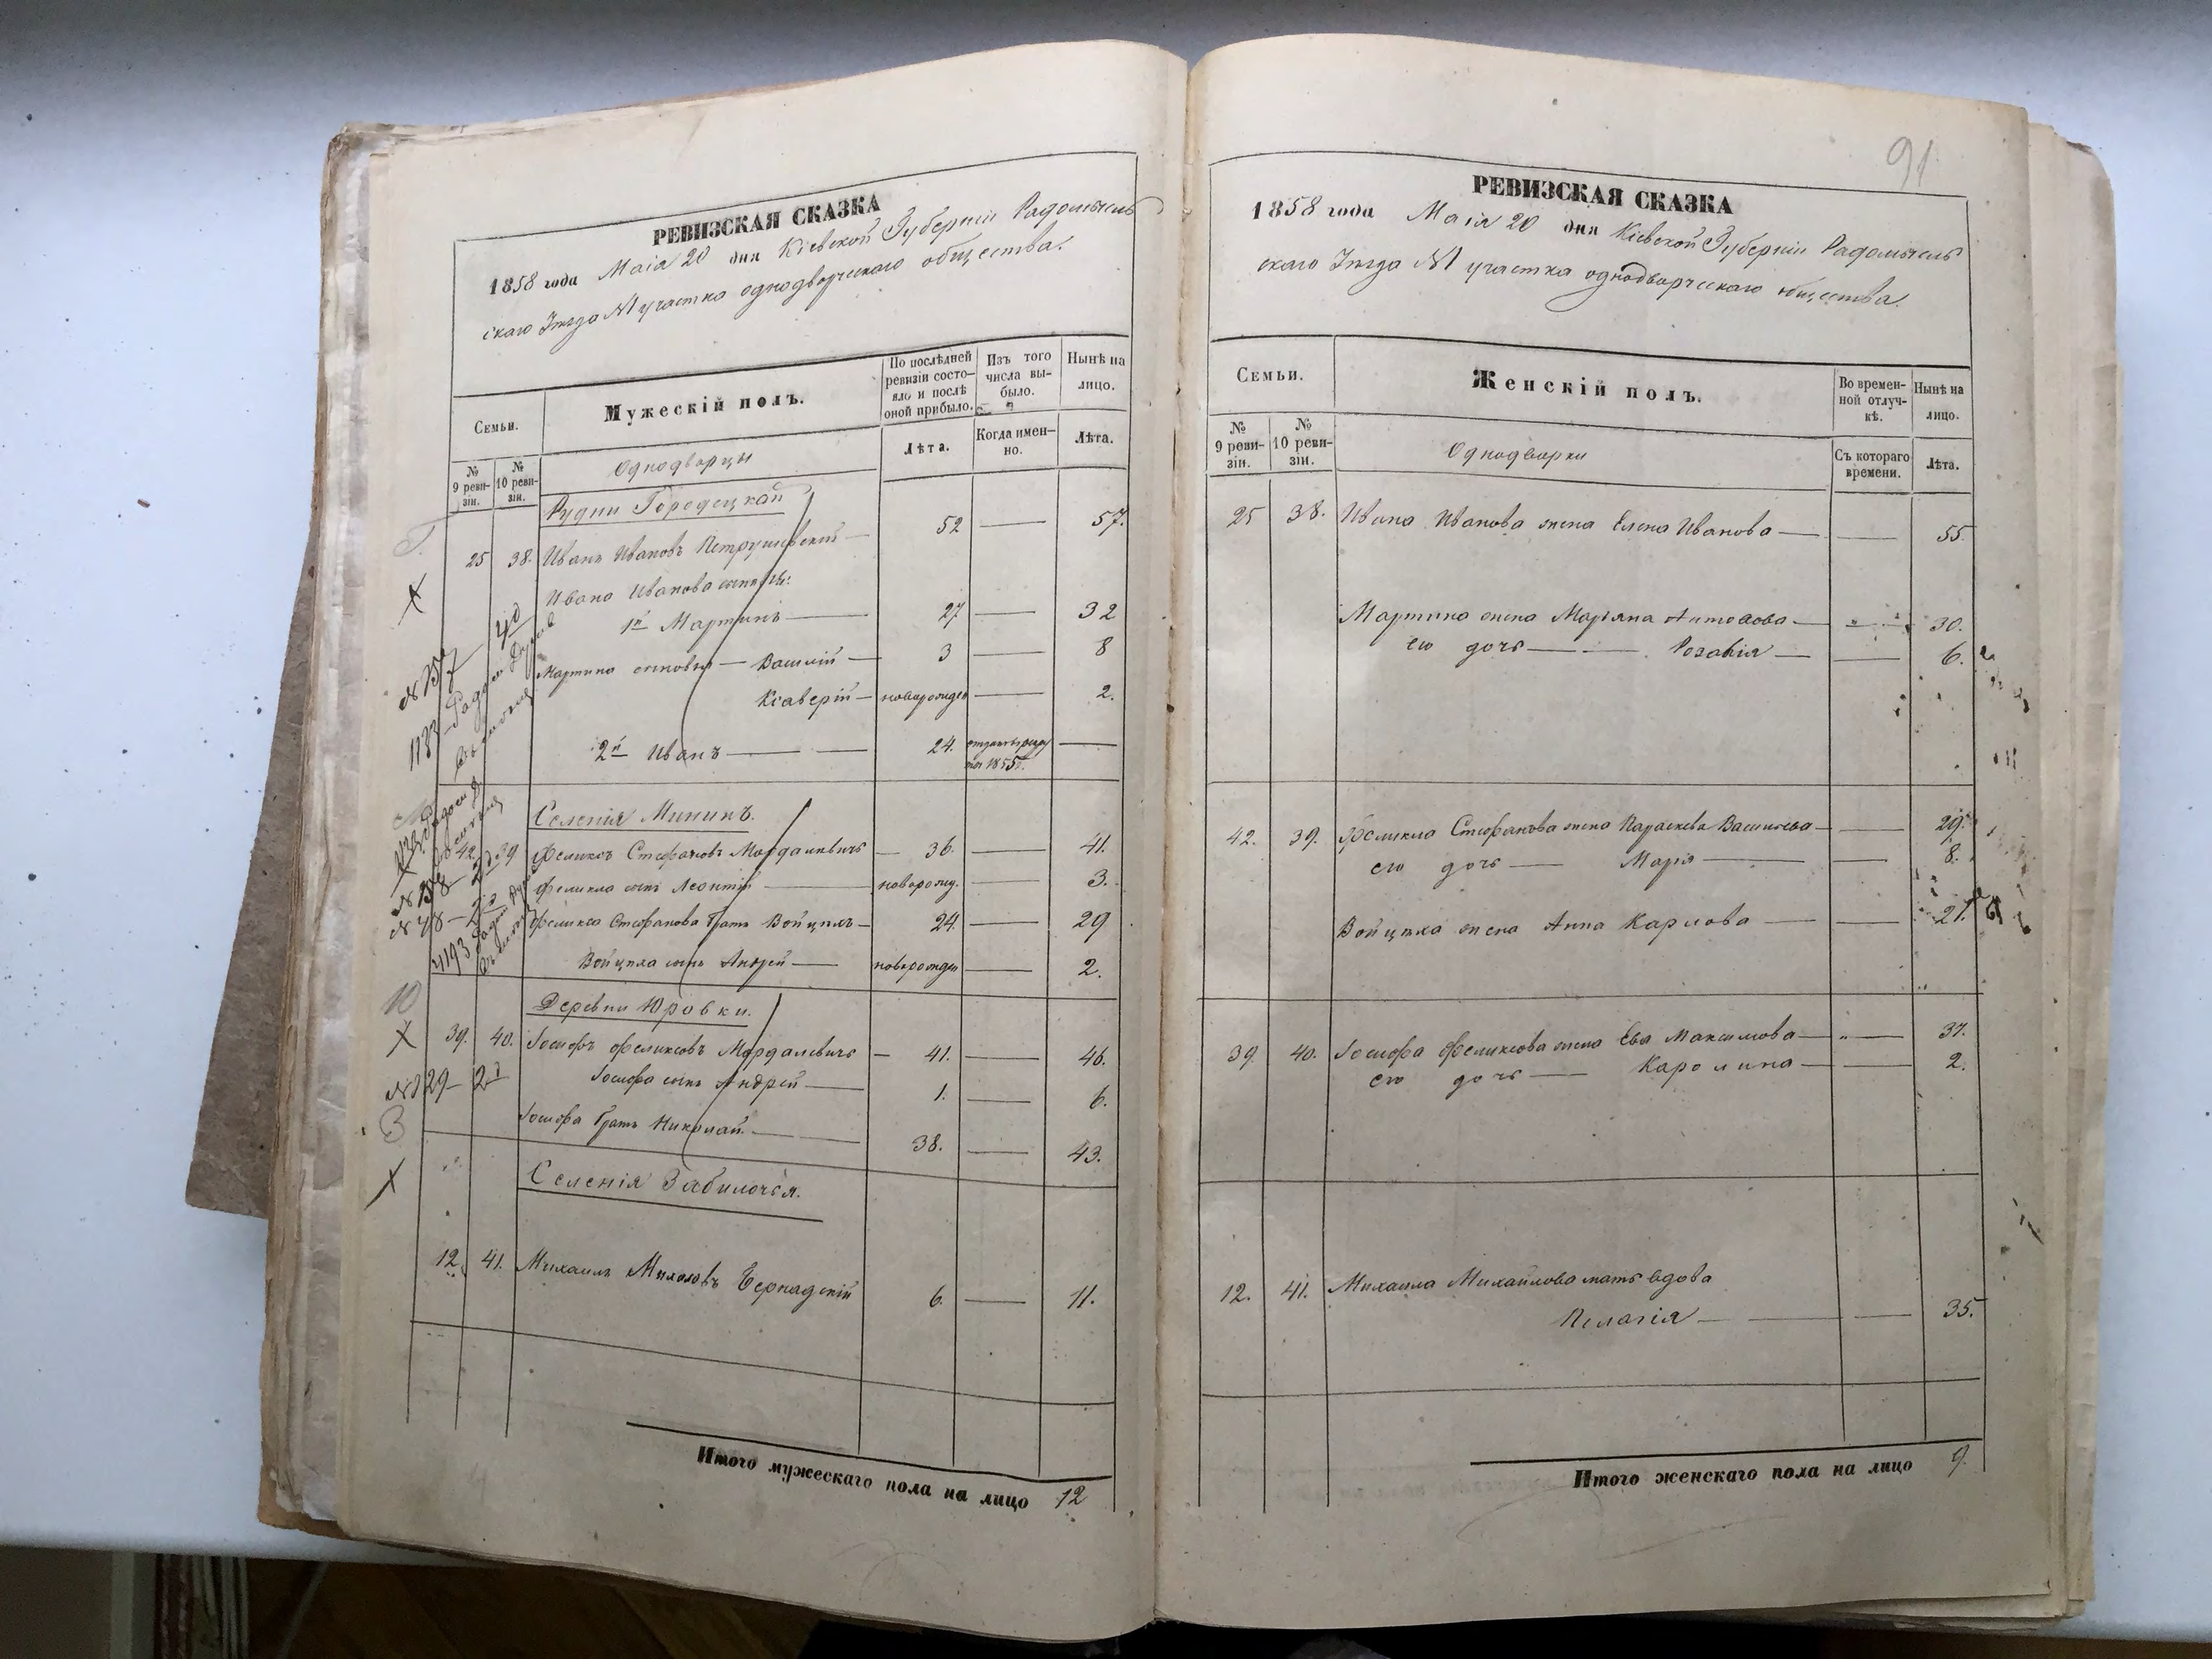 РЕВИЗСКАЯ СКАЗКА
1858 года Маія 20 дня Кіевской Губерніи Радомысль
скаго Уѣзда №1 участка однодворческаго общества.
Семьи.
Мужескій полъ.
По послѣдней ревизіи состояло и послѣ оной прибыло.
Изъ того числа выбыло.
Нынѣ на лицо.
№ 9 ревизіи.
№ 10 ревизіи.
Однодворцы
Лѣта.
Когда именно.
Лѣта.
Рудни Городецкой
25 38. Иванъ Ивановъ Петрушевскій — 52 — 57.
Ивана Иванова сыновья:
1й Мартинъ — 27 — 32
Мартина сыновья — Василій — 3 — 8
Ксаверій — новорожден — 2.
2й Иванъ — 24. —
1855
Селенія Мининъ.
42 39 Феликсъ Стефановъ Мордалевичъ — 36. — 41.
Феликса сынъ Леонтій — новорожд. — 3.
Феликса Стефанова братъ Войцехъ — 24. — 29
Войцеха сынъ Андрей — новорожден — 2.
Деревни Юровки.
39. 40. Іосифъ Феликсовъ Мордалевичъ — 41. — 46.
Іосифа сынъ Андрей — 1. — 6.
Іосифа братъ Николай. — 38. — 43.
Селенія Забилочья.
12. 41. Михаилъ Бернадскій 6. — 11.
Итого мужескаго пола на лицо 12
91
РЕВИЗСКАЯ СКАЗКА
1858 года Маія 20 дня Кіевской Губерніи Радомысль
скаго Уѣзда №1 участка однодворческаго общества.
Семьи.
Женскій полъ.
Во временной отлучкѣ.
Нынѣ на лицо.
№ 9 ревизіи.
№ 10 ревизіи.
Однодворки
Съ котораго времени.
Лѣта.
25 38. Ивана Иванова жена Елена Иванова — — 55.
Мартина жена Маріяна Антонова — 30.
его дочь — Розалія — — 6.
42. 39. Феликса Стефанова жена Параскева Васильева — — 29.
его дочь — Марія — — 8.
Войцеха жена Анна Карлова — — 21.
39. 40. Іосифа Феликсова жена Ева Максимова — — 37.
его дочь — Каролина — — 2.
12. 41. Михаила Михайлова мать вдова
Пелагія — — 35.
Итого женскаго пола на лицо 9.